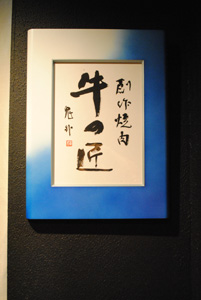 創作焼肉
牛の匠